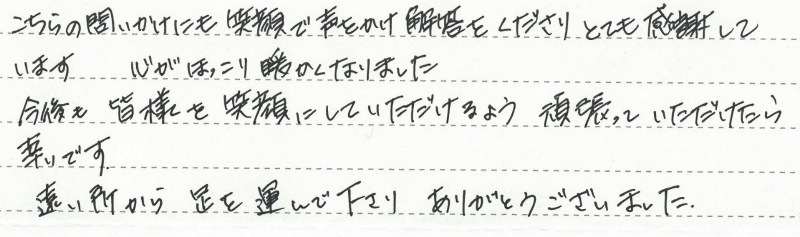 こちらの問いかけにも 笑顔で声をかけ 解答をくださり とても感謝して
います　心がほっこり暖かくなりました
今後も 皆様を笑顔にしていただけるよう 頑張っていただけたら
幸いです
遠い所から 足を運んで下さり ありがとうございました.